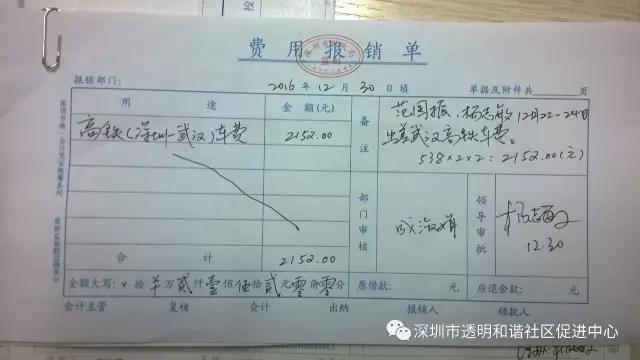 费用报销单
报销部门: 2016年12月30日填 单据及附件共 页
用途 金额(元)
高铁(深圳-武汉)车费 2152.00
合计 2152.00
备注
范国振、杨志敏12月22-24日
出差武汉高铁车费。
538×2×2=2152.00(元)
部门审核
领导审批
12.30
金额大写: × 拾 万 贰 仟 壹 佰 伍 拾 贰 元 零 角 零 分 原借款: 元 应退余款: 元
会计主管 复核 会计 出纳 报销人 领款人
深圳市透明和谐社区促进中心